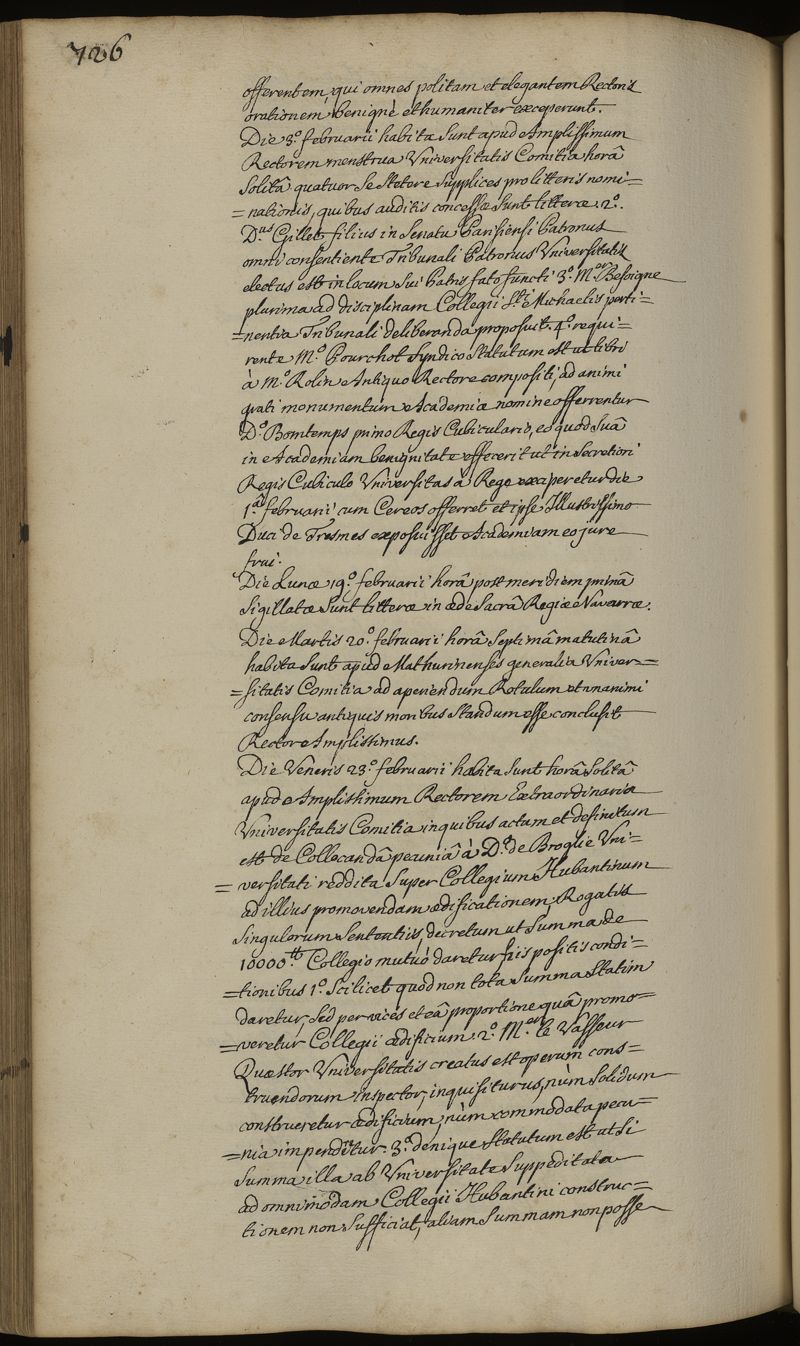 726
offerentem, qui omnes politam et elegantem Rectoris
orationem benignè et humaniter exceperunt.
Die 3.º februarii habita sunt apud Amplissimum
Rectorem menstrua Universitatis Comitia horâ
solitâ quatuor se stetere supplices pro litteris nomi=
=nationis, quibus auditis concessæ sunt litteræ. 2º.
D.us Gillet filius in Senatu Parisiensi Patronus
omni consentiente Tribunali Patronus Universitatis
electus est in locum sui Patris fato functi 3º. M.er Besoigne
plurima ad disciplinam Collegii S.ti Michaelis perti=
=nentia Tribunali deliberanda proposuit. 4º. requi=
rente M.º Pourchot Syndico statutum est ut libri
à M.º Rolin Antiquo Rectore compositi, ad animi
grati monumentum Academiæ nomine offerrentur
D.º Bomtemps primo Regis Cubiculario, eo quod suâ
in Academiam benignitate effecerit ut in secretiori
Regis Cubiculo Universitas à Rege exciperetur die
1.â februarii cum Cereos offerret et ipse Illustrissimo
Duci de Tresmes exposuisset Academiam eo jure
frui.
Die Lunæ 19.º februarii horâ post meridiem primâ
sigillatæ sunt litteræ in æde sacrâ Regiæ Navarræ.
Die Martis 20.º februarii horâ septimâ matutinâ
habita sunt apud Mathurinenses generalia Univer=
=sitatis Comitia ad aperiendum Rotulum et unanimi
consensu antiquis moribus standum esse conclusit
Rector Amplissimus.
Die Veneris 23.º februarii habita sunt horâ solitâ
apud Amplissimum Rectorem Extraordinaria
Universitatis Comitia in quibus actum et definitum
est de Collocandâ pecuniâ à D. de Broglie Uni=
=versitati reddita super Collegium Hubantinum
ad illius promovendam ædificationem, Rogatis
singulorum sententiis, decretum ut summa de
10000.tt Collegio mutuò daretur his positis condi=
=tionibus 1º. scilicet quod non tota summa statim
daretur, sed per vices et eâ proportione quâ promo=
=veretur Collegii ædificium. 2º. M.er le Vasseur
Quæstor Universitatis creatus est operum cons=
truendorum inspector, inquisiturus, nùm solidum
construeretur ædificium, nùm commodata pecu=
=nia impendêtur. 3º. denique statutum est ut si
summa illa ab Universitate suppeditata
ad omnimodam Collegii Hubantini construc=
tionem non sufficiat, aliam summam non posse